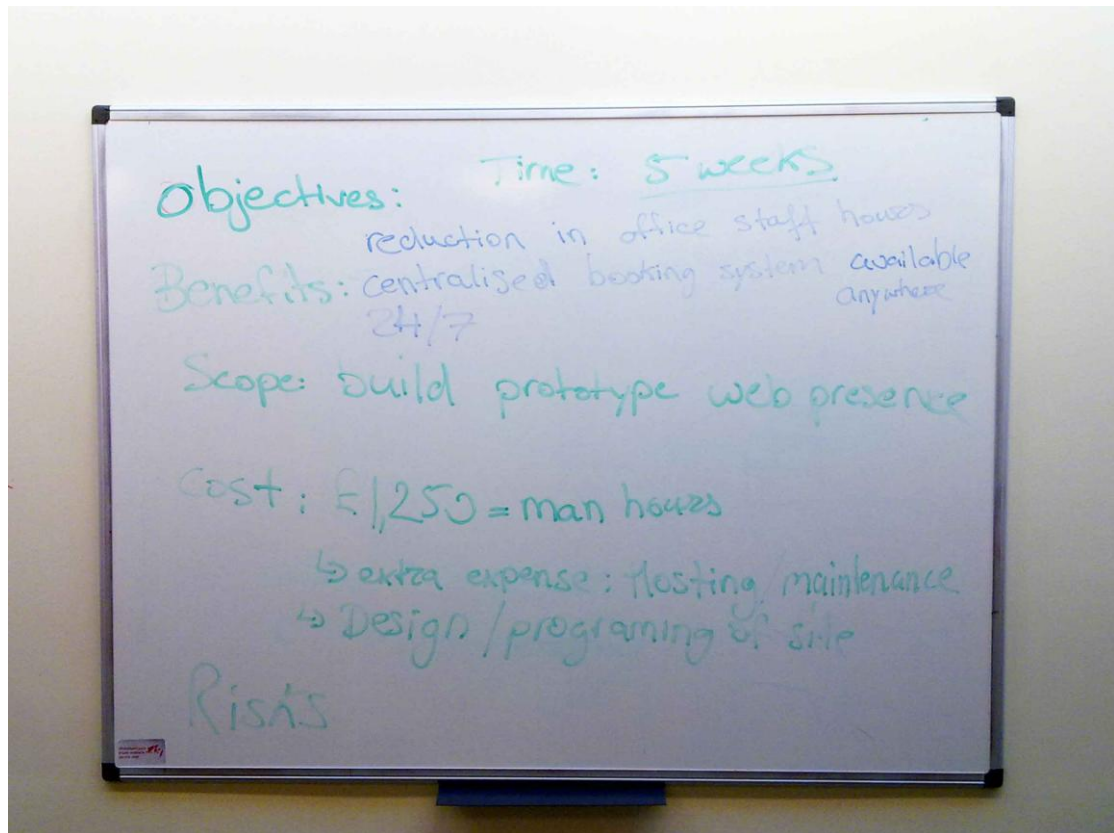 Time: 5 weeks
Objectives:
reduction in office staff hours
Benefits: centralised booking system available
anywhere
24/7
Scope: build prototype web presence
Cost: £1,250 = man hours
↳ extra expense: Hosting/maintenance
↳ Design/programing of site
Risks